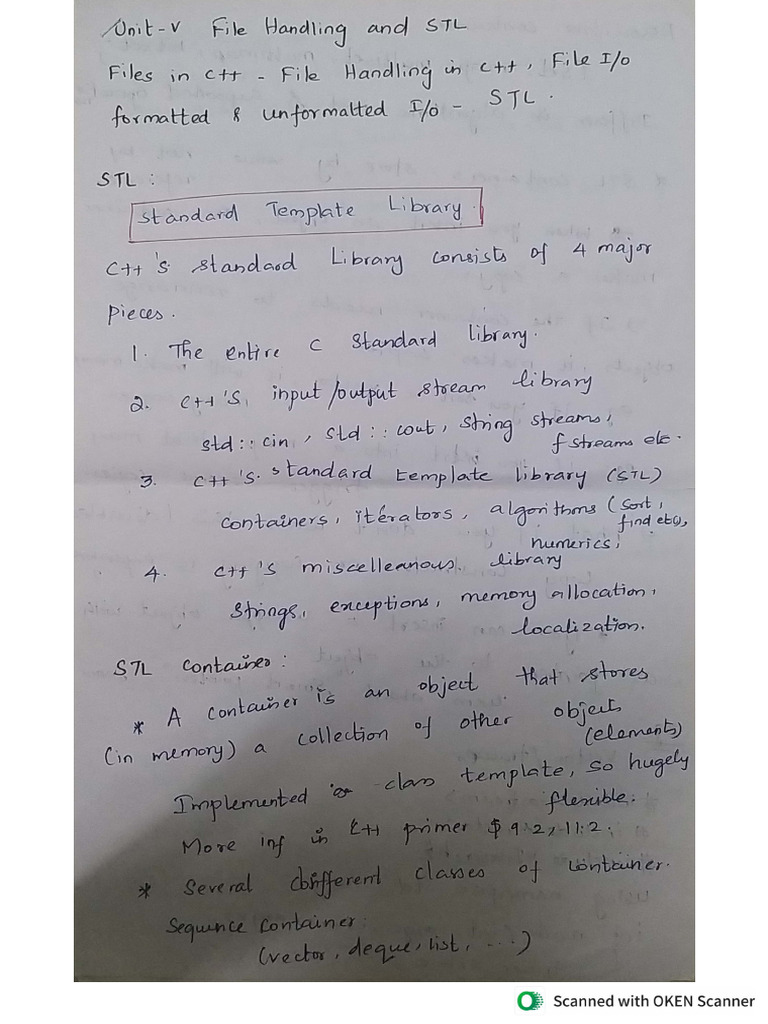 Unit-V File Handling and STL
Files in C++ - File Handling in C++, File I/O
formatted & unformatted I/O - STL.
STL:
Standard Template Library.
C++'s Standard Library consists of 4 major
pieces.
1. The entire C Standard library.
2. C++'s, input/output stream library
std::cin, std::cout, string streams,
fstreams etc.
3. C++'s. standard template library (STL)
containers, iterators, algorithms (sort,
find etc),
numerics,
4. C++'s miscelleanous. library
strings, exceptions, memory allocation,
localization.
STL container:
* A container is an object that stores
(in memory) a collection of other objects
(elements)
Implemented class template, so hugely
flexible.
More inf in C++ primer $ 9.2, 11.2.
* Several different classes of container.
Sequence container
(vector, deque, list, ....)
Scanned with OKEN Scanner